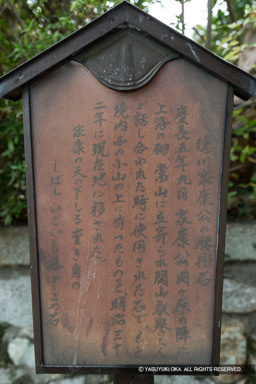 徳川家康公の腰掛石
慶長五年九月 家康公関ヶ原の陣
上洛の砌 当山に立寄られ開山
と話し合われた時に使用された石でもと
境内西の小山の上に有ったものを明治三十
二年に現在地に移された
家康の天のしる
しばし
© YASUYUKI OKA. ALL RIGHTS RESERVED.